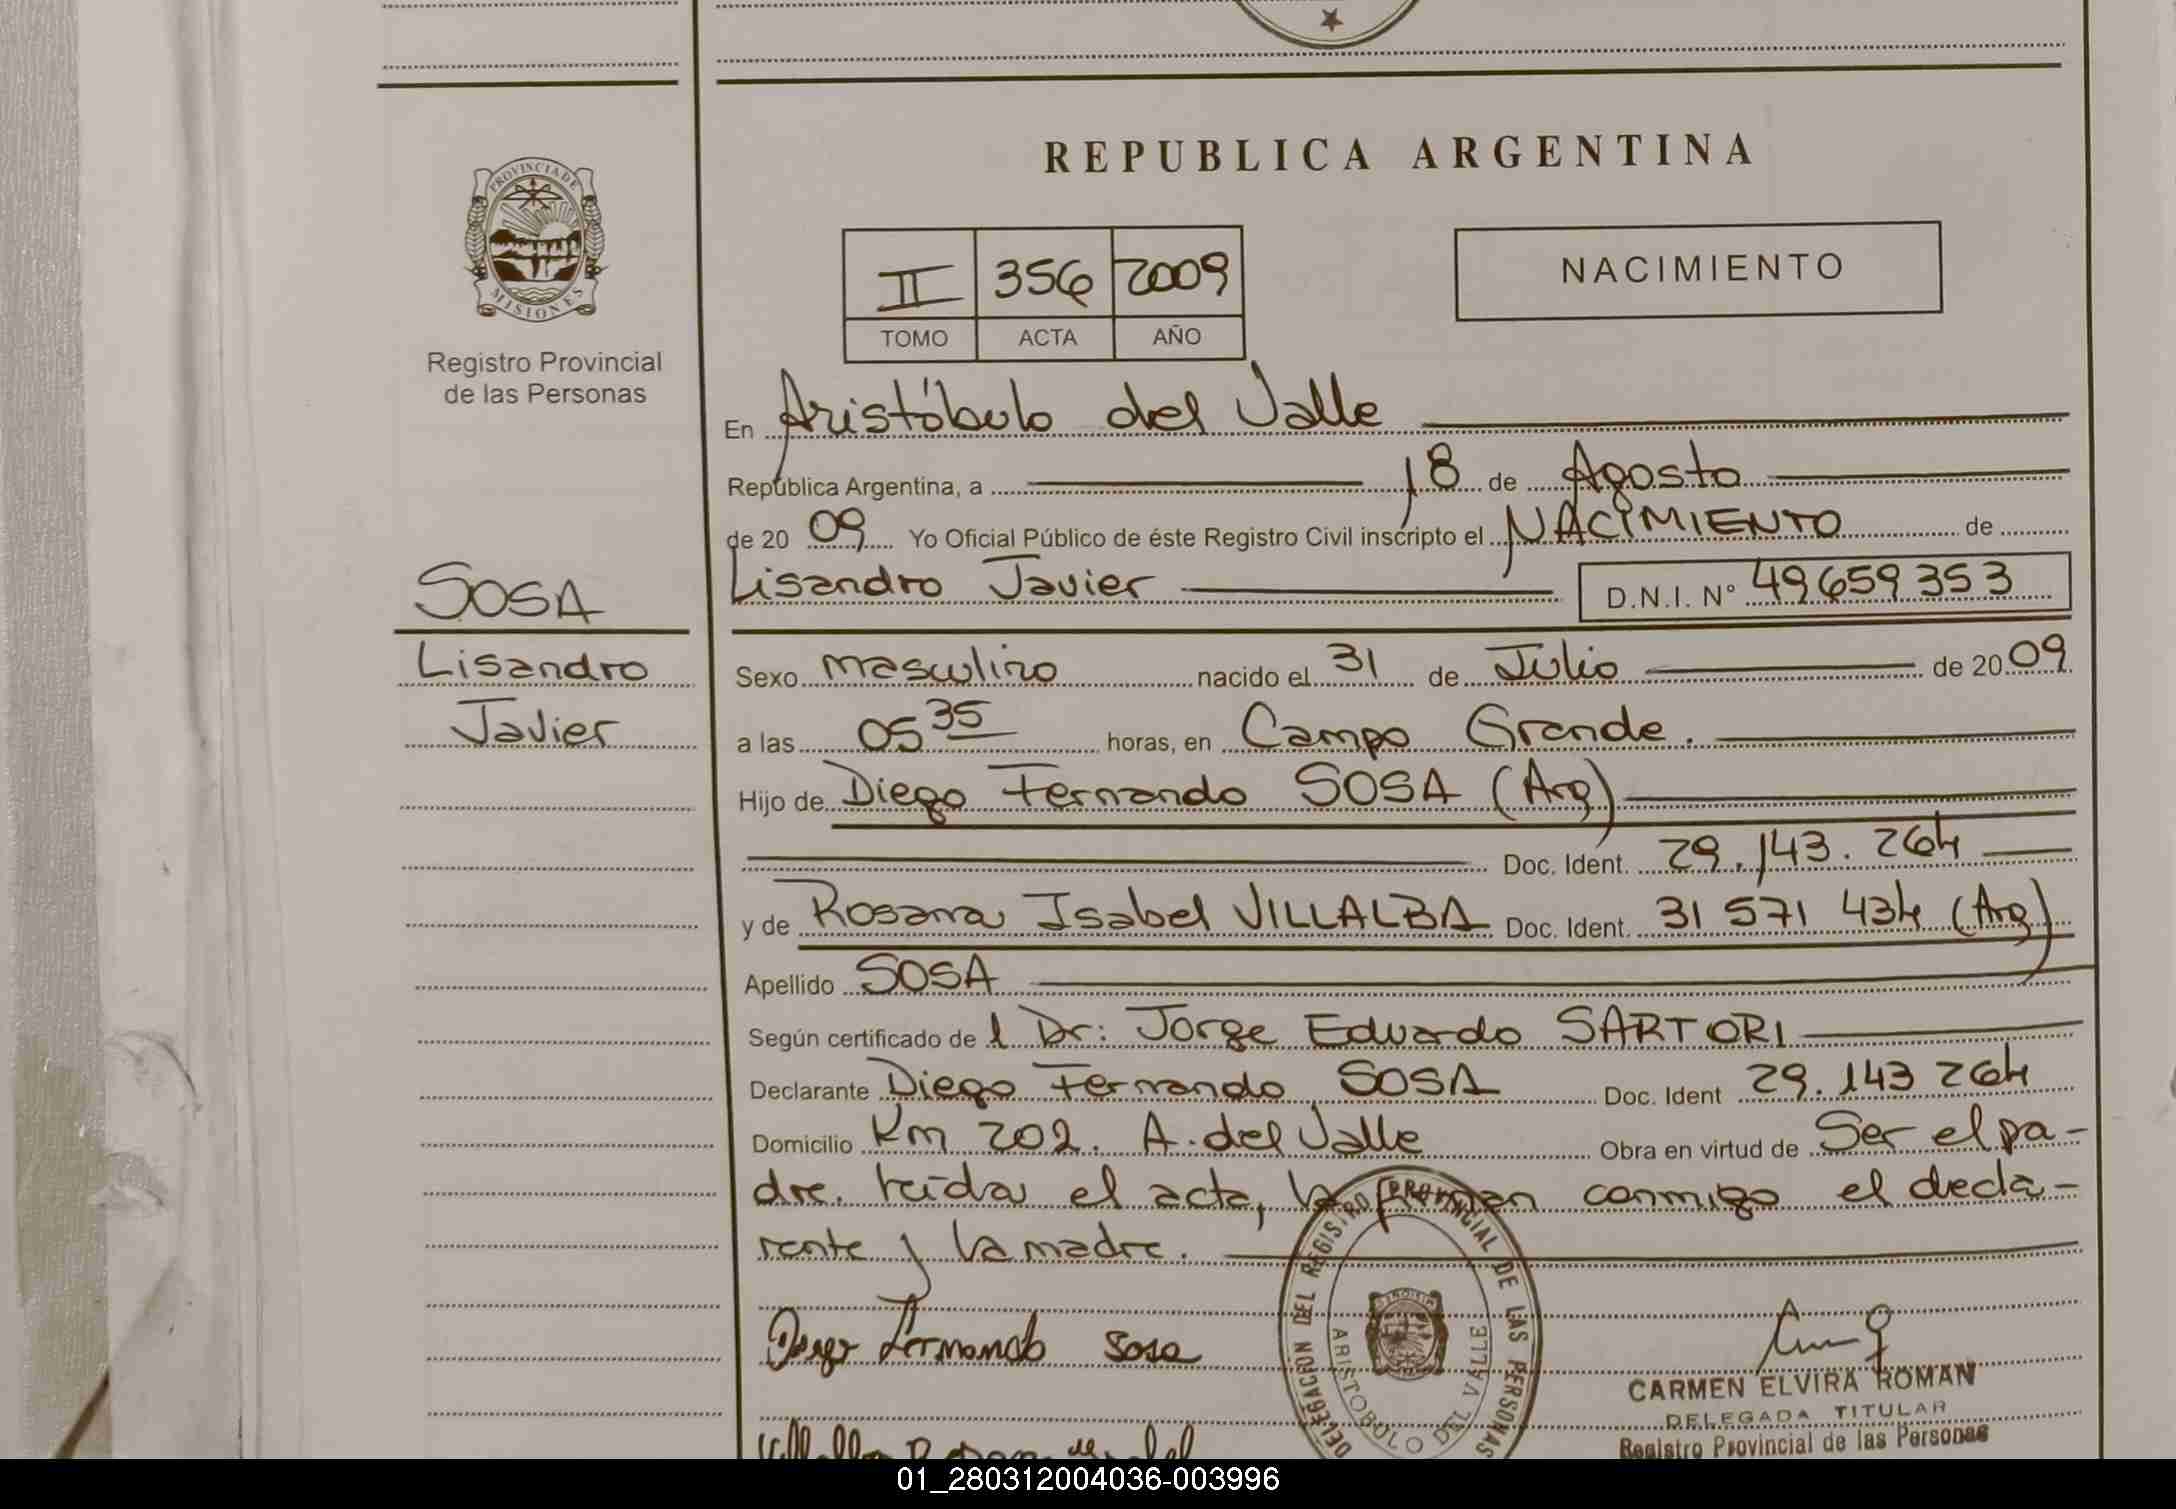 REPUBLICA ARGENTINA
PROVINCIA DE
MISIONES
Registro Provincial
de las Personas
II 356 2009
TOMO ACTA AÑO
NACIMIENTO
En Aristóbulo del Valle
República Argentina, a 18 de Agosto
de 20 09 Yo Oficial Público de éste Registro Civil inscripto el NACIMIENTO de
Lisandro Javier D.N.I. N° 49659353
SOSA
Lisandro
Javier
Sexo masculino nacido el 31 de Julio de 20 09
a las 05 35 horas, en Campo Grande.
Hijo de Diego Fernando SOSA (Arg)
Doc. Ident. 29.143.264
y de Rosana Isabel VILLALBA Doc. Ident. 31 571 434 (Arg)
Apellido SOSA
Según certificado de l Dr: Jorge Eduardo SARTORI
Declarante Diego Fernando SOSA Doc. Ident 29.143 264
Domicilio Km 202. A. del Valle Obra en virtud de Ser el pa-
dre. leída el acta, la firman conmigo el decla-
rante y la madre.
Diego Fernando Sosa
DELEGACIÓN DEL REGISTRO PROVINCIAL DE LAS PERSONAS
ARISTOBULO DEL VALLE
CARMEN ELVIRA ROMAN
DELEGADA TITULAR
Registro Provincial de las Personas
01_280312004036-003996